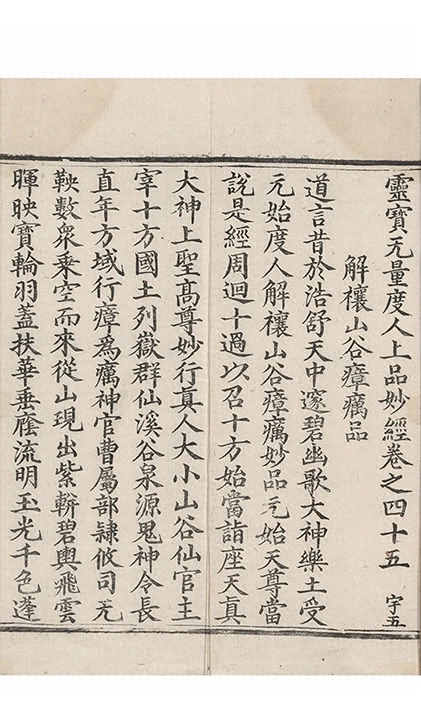 靈寳无量度人上品妙經卷之四十五 宇五
解禳山谷瘴癘品
道言昔於浩舒天中邃碧幽歌大神樂土受
元始度人解禳山谷瘴癘妙品元始天尊當
說是經周迴十過以召十方始當詣座天真
大神上聖高尊妙行真人大小山谷仙官主
宰十方國土列嶽群仙溪谷泉源鬼神令長
直年方域行瘴為癘神官曹屬部隷攸司无
鞅數眾乗空而來從山現出紫軿碧輿飛雲
暉映寳輪羽蓋扶華垂䕃流明玉光千色蓬